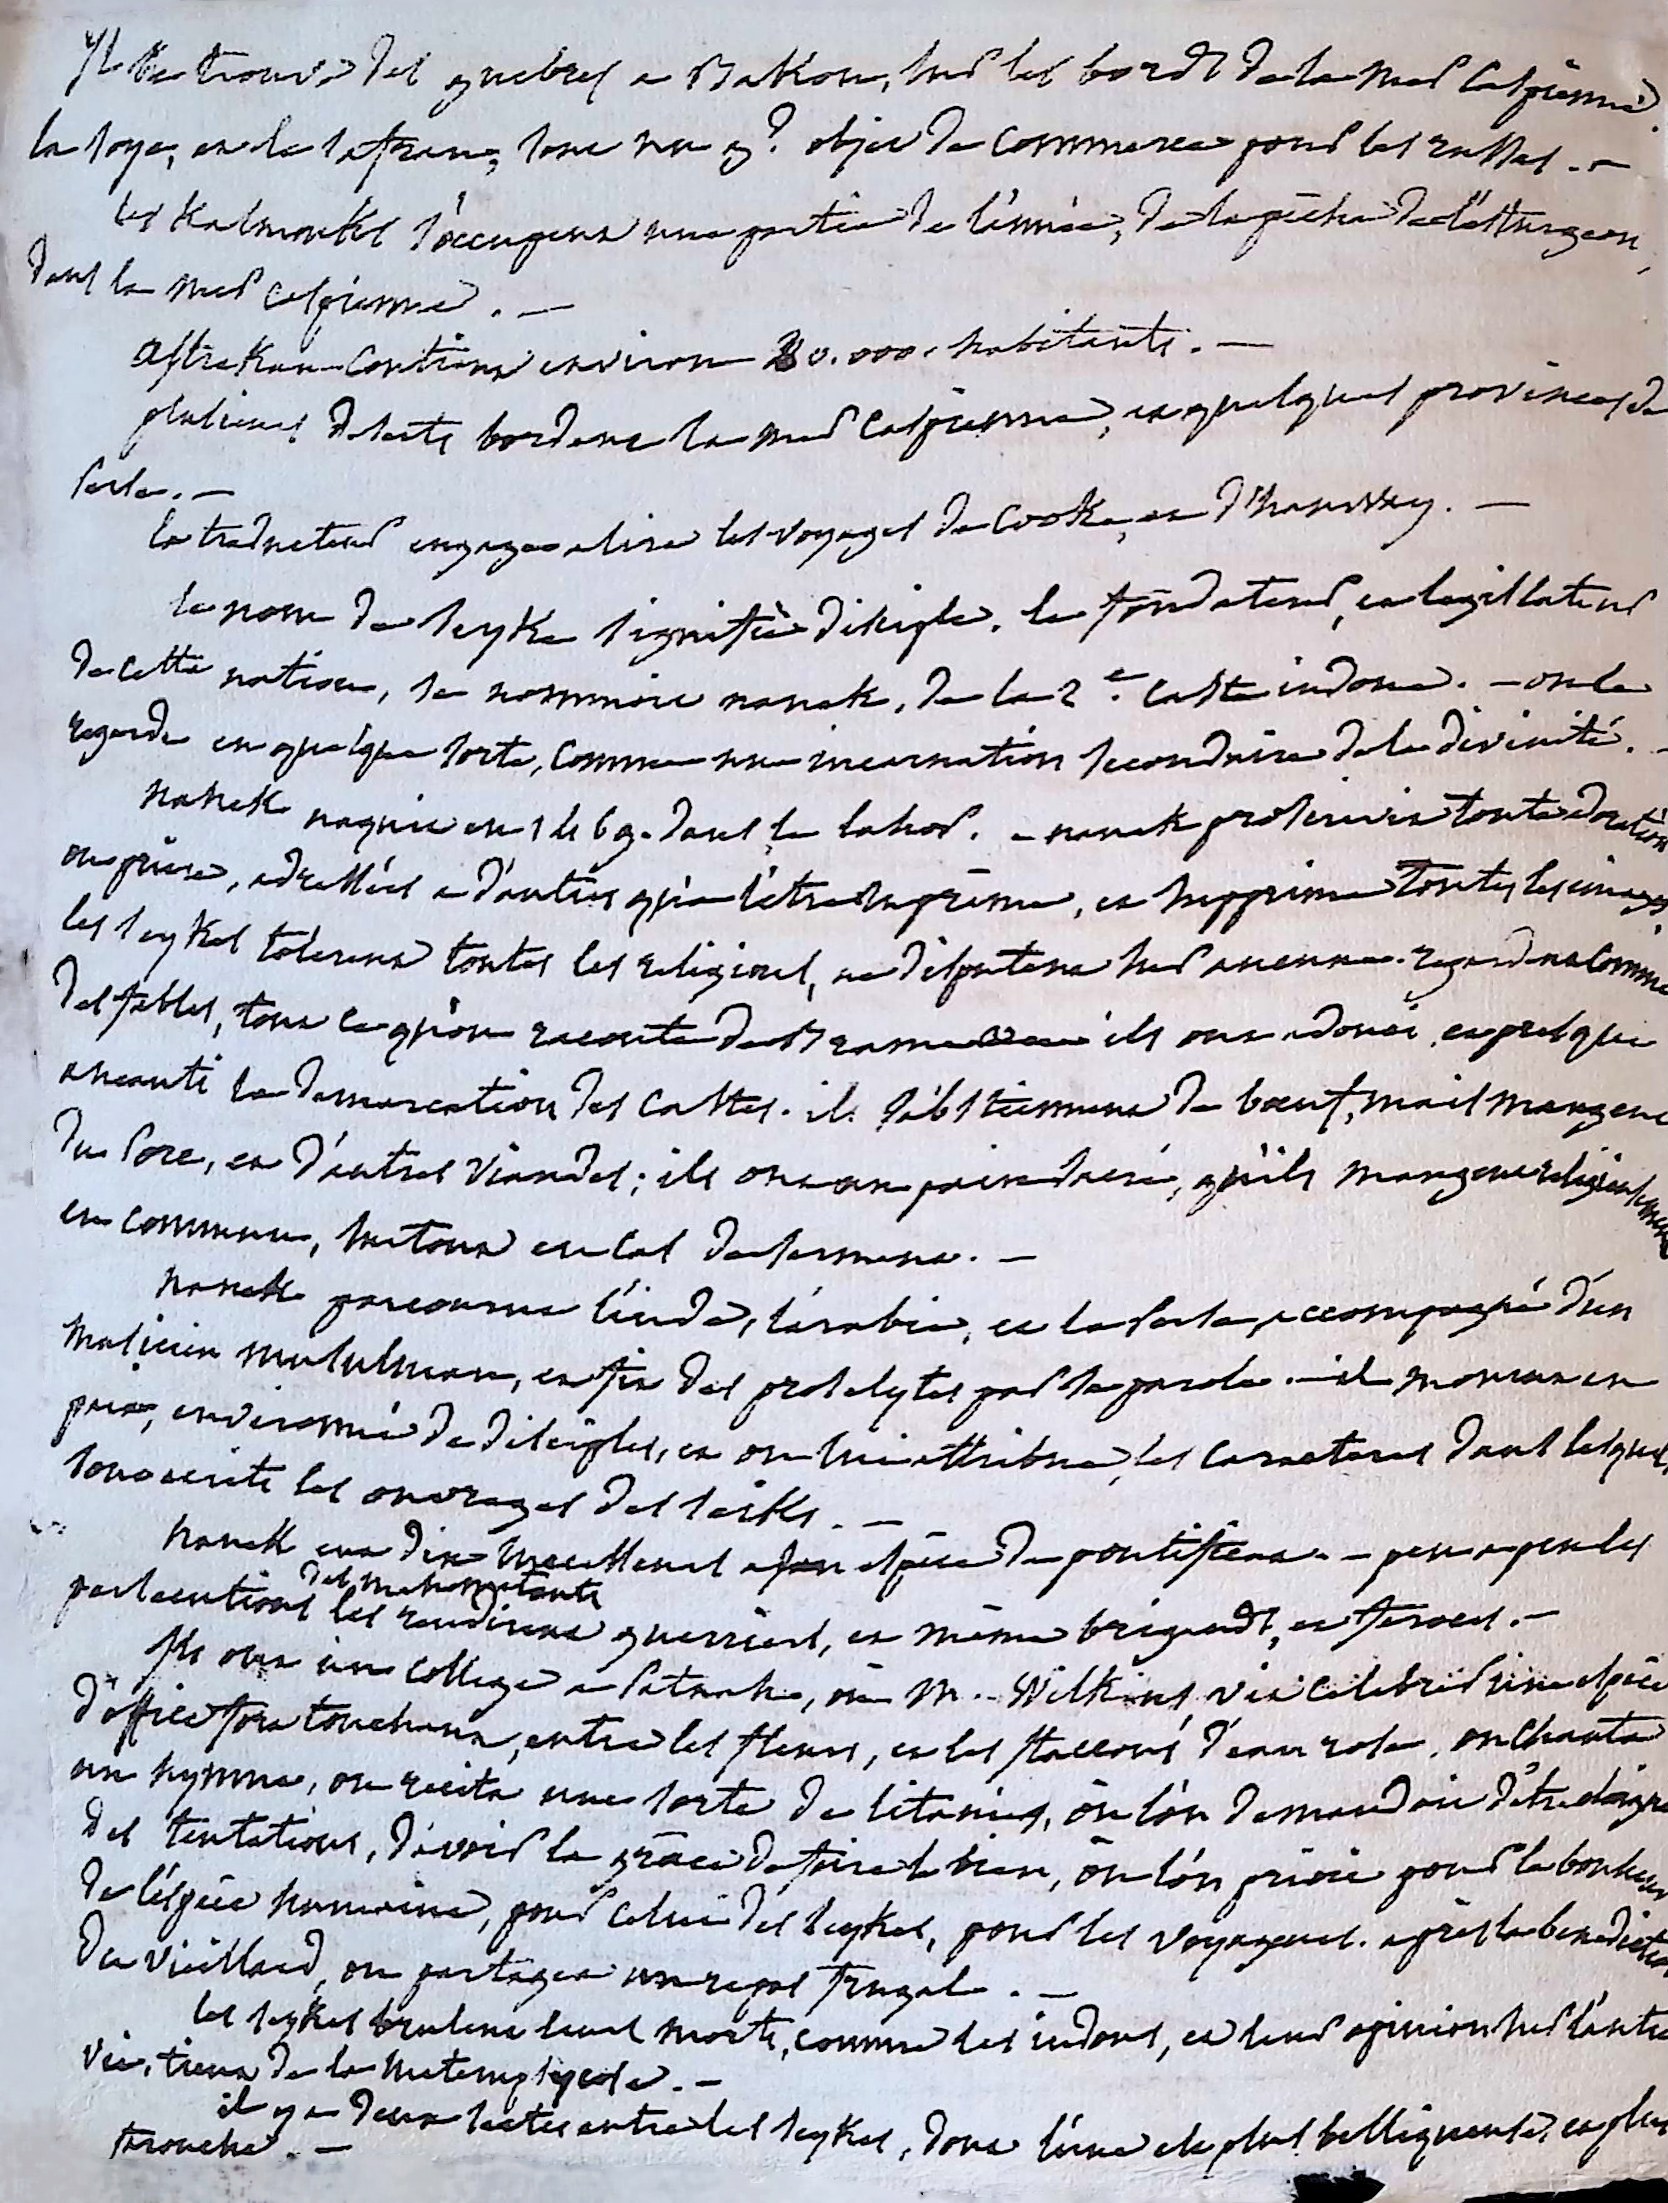 Il se trouve des guebres a Bakou, sur les bords de la mer Caspienne.
la soye, et le safran, sont un gd objet de commerce pour les russes. —
les Kalmouks s'occupent une partie de l'année, de la pêche de l'esturgeon,
dans la mer caspienne. —
astrakan contient environ 80.000 habitants. —
plusieurs deserts bordent la mer Caspienne, et quelques provinces de
Perse. —
le traducteur engage a lire les voyages de Cooke, et d'hanway. —
le nom de seyke signifie disciple. le fondateur, et legislateur
de cette nation, se nommoit nanek, de la 2e. caste indoue. — on le
regarde en quelque sorte, comme une incarnation secondaire de la divinité. —
nanek naquit en 1469. dans le lahor. — nanek proscrivit toute adoration
ou priere, adressées a d'autres qu'a l'être suprême, et supprima toutes les images.
les seykes tolerent toutes les religions, ne disputent sur aucune. regardent comme
des fables, tout ce qu'on raconte de Brama ils ont adouci, et presque
aneanti la demarcation des castes. ils s'abstiennent de boeuf, mais mangent
du Porc, et d'autres viandes; ils ont un pain sacré, qu'ils mangent religieusement
en commun, surtout en cas de serment. —
nanek parcourut l'inde, l'arabie, et la Perse, accompagné d'un
musicien musulman, et fit des proselytes par sa parole. — il mourut en
paix, environné de disciples, et on lui attribue, les caracteres dans lesquels
sont ecrits les ouvrages des seiks. —
nanek eut dix successeurs a son espèce de pontificat. — peu a peu les
persecutions des mahometants les rendirent guerriers, et même brigands, et feroces. —
Ils ont un college a Patnah, où M. Wilkins, vit celebrer une espèce
d'office fort touchant, entre les fleurs, et les flaccons d'eau rose. on chanta
un hymne, on recita une sorte de litanies, où l'on demandoit d'être éloigné
des tentations, d'avoir la grâce de faire le bien, où l'on prioit pour le bonheur
de l'espèce humaine, pour celui des seykes, pour les voyageurs. après la benediction
du vieillard, on partagea un repas frugal. —
les seykes brulent leurs morts, comme les indous, et leur opinion sur l'autre
vie, tient de la metempsycose. —
il y a deux sectes entre les seykes, dont l'une est plus belliqueuse, et plus
farouche. —